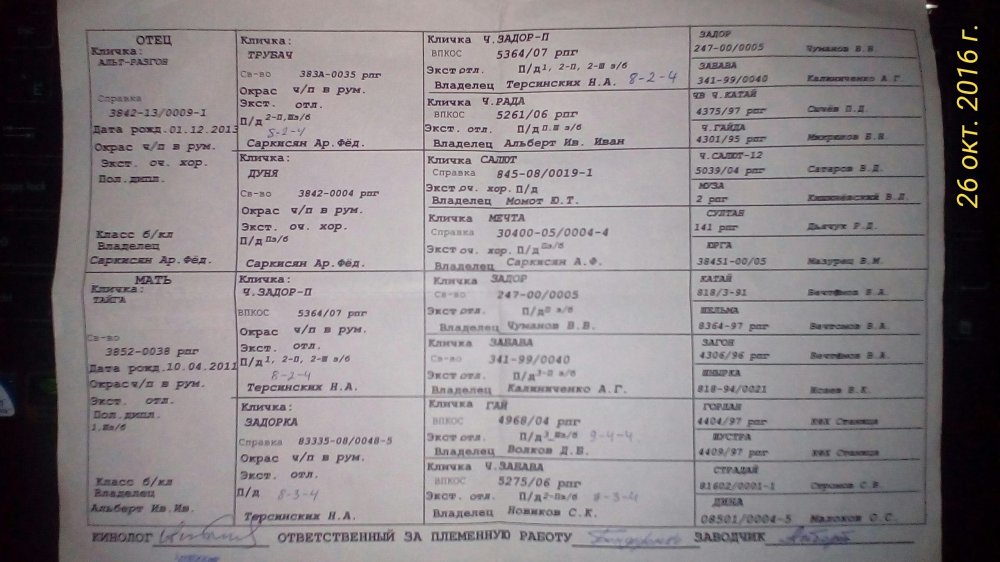 ОТЕЦ
Кличка:
АЛЬТ-РАЗГОН
Справка
3842-13/0009-1
Дата рожд.01.12.2013
Окрас ч/п в рум.
Экст. оч. хор.
Пол.дипл.
Класс б/кл
Владелец
Саркисян Ар.Фёд.
МАТЬ
Кличка:
ТАЙГА
Св-во
3852-0038 рпг
Дата рожд.10.04.2011
Окрас ч/п в рум.
Экст. отл.
Пол.дипл.
Класс б/кл
Владелец
Альберт Ив.Ив.
Кличка:
ТРУБАЧ
Св-во 383А-0035 рпг
Окрас ч/п в рум.
Экст. отл.
П/д 2-П,Шз/б
8-2-4
Саркисян Ар.Фёд.
Кличка:
ДУНЯ
Св-во 3842-0004 рпг
Окрас ч/п в рум.
Экст. оч. хор.
П/д Пз/б
Саркисян Ар.Фёд.
Кличка:
Ч.ЗАДОР-П
ВПКОС 5364/07 рпг
Окрас ч/п в рум.
Экст. отл.
П/д 1, 2-П, 2-Ш з/б
8-2-4
Терсинских Н.А.
Кличка:
ЗАДОРКА
Справка 83335-08/0048-5
Окрас ч/п в рум.
Экст. отл.
П/д 8-3-4
Терсинских Н.А.
Кличка Ч.ЗАДОР-П
ВПКОС 5364/07 рпг
Экст отл. П/д 1, 2-П, 2-Ш з/б
Владелец Терсинских Н.А. 8-2-4
Кличка Ч.РАДА
ВПКОС 5261/06 рпг
Экст отл. П/д П.Ш з/б
Владелец Альберт Ив. Иван
Кличка САЛЮТ
Справка 845-08/0019-1
Экст оч. хор. П/д
Владелец Момот Ю.Т.
Кличка МЕЧТА
Справка 30400-05/0004-4
Экст оч. хор. П/д Пз/б
Владелец Саркисян А.Ф.
Кличка ЗАДОР
Св-во 247-00/0005
Экст отл. П/д
Владелец Чуманов В.В.
Кличка ЗАБАВА
Св-во 341-99/0040
Экст отл. П/д 3-П з/б
Владелец Калиниченко А.Г.
Кличка ГАЙ
ВПКОС 4968/04 рпг
Экст отл. П/д 9-4-4
Владелец Волков Д.Б.
Кличка Ч.ЗАБАВА
ВПКОС 5275/06 рпг
Экст отл. П/д 2-Пз/б 8-3-4
Владелец Новиков С.К.
ЗАДОР
247-00/0005 Чуманов В.В
ЗАБАВА
341-99/0040 Калиниченко А.Г.
ЧВ Ч.КАТАЙ
4375/97 рпг Сычёв П.Д.
Ч.ГАЙДА
4301/95 рпг
Ч.САЛЮТ-12
5039/04 рпг Сатаров В.Д.
МУЗА
2 рпг
СУЛТАН
141 рпг Дьячук Р.Д.
ЮРГА
38451-00/05 Мазурец В.М.
КАТАЙ
818/3-91 Вечтомов В.А.
ШЕЛЬМА
8364-97 рпг Вечтомов В.А.
ЗАГОН
4306/96 рпг Вечтомов В.А.
ШНЫРКА
818-94/0021 Исаев В.К.
ГОРДАН
4404/97 рпг Станица
ШУСТРА
4409/97 рпг Станица
СТРАДАЙ
81602/0001-1
ДИНА
08501/0004-5 Малохов О.С.
КИНОЛОГ ОТВЕТСТВЕННЫЙ ЗА ПЛЕМЕННУЮ РАБОТУ ЗАВОДЧИК
26 окт. 2016 г.